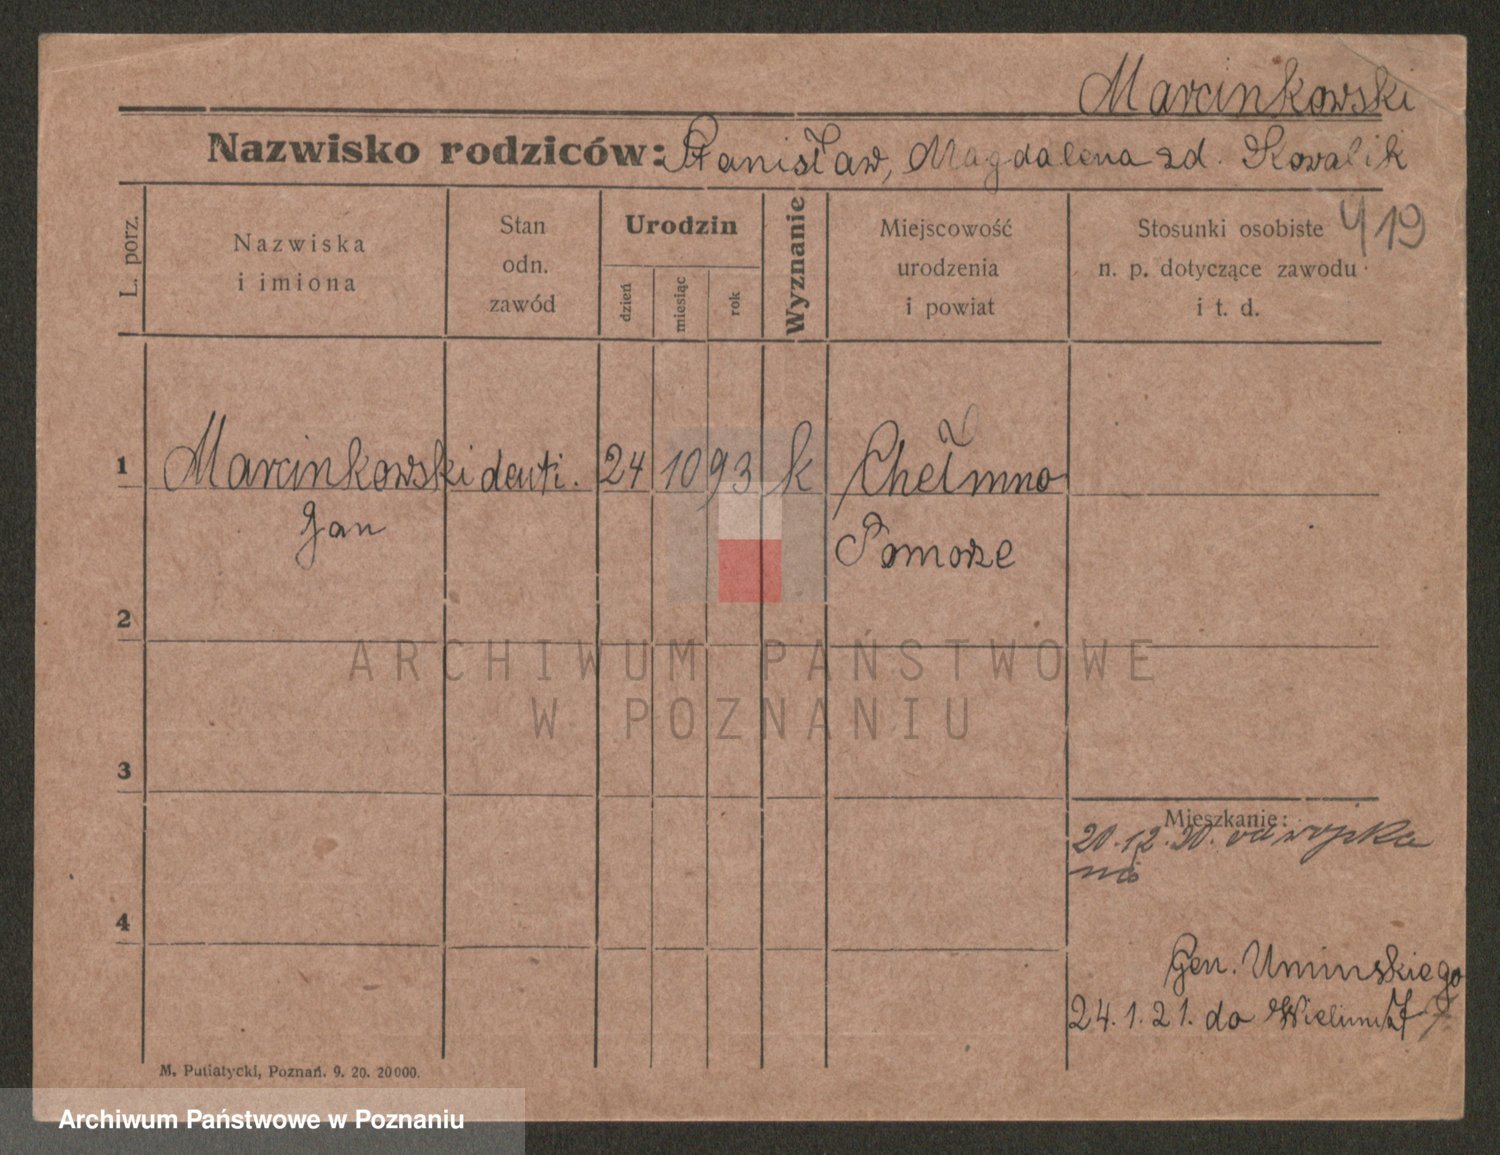 Marcinkowski
Nazwisko rodziców: Stanisław, Magdalena zd. Kowalik
L. porz.
Nazwiska
i imiona
Stan
odn.
zawód
Urodzin
dzień
miesiąc
rok
Wyznanie
Miejscowość
urodzenia
i powiat
Stosunki osobiste
n. p. dotyczące zawodu
i t. d.
419
1 Marcinkowski denti. 24 10 93 k Chełmno
Jan Pomorze
2
ARCHIWUM PAŃSTWOWE
W POZNANIU
3
Mieszkanie:
20.12.20. od wojska
4
Gen. Umińskiego
24.1.21. do
7.
M. Putiatycki, Poznań. 9. 20. 20000.
Archiwum Państwowe w Poznaniu